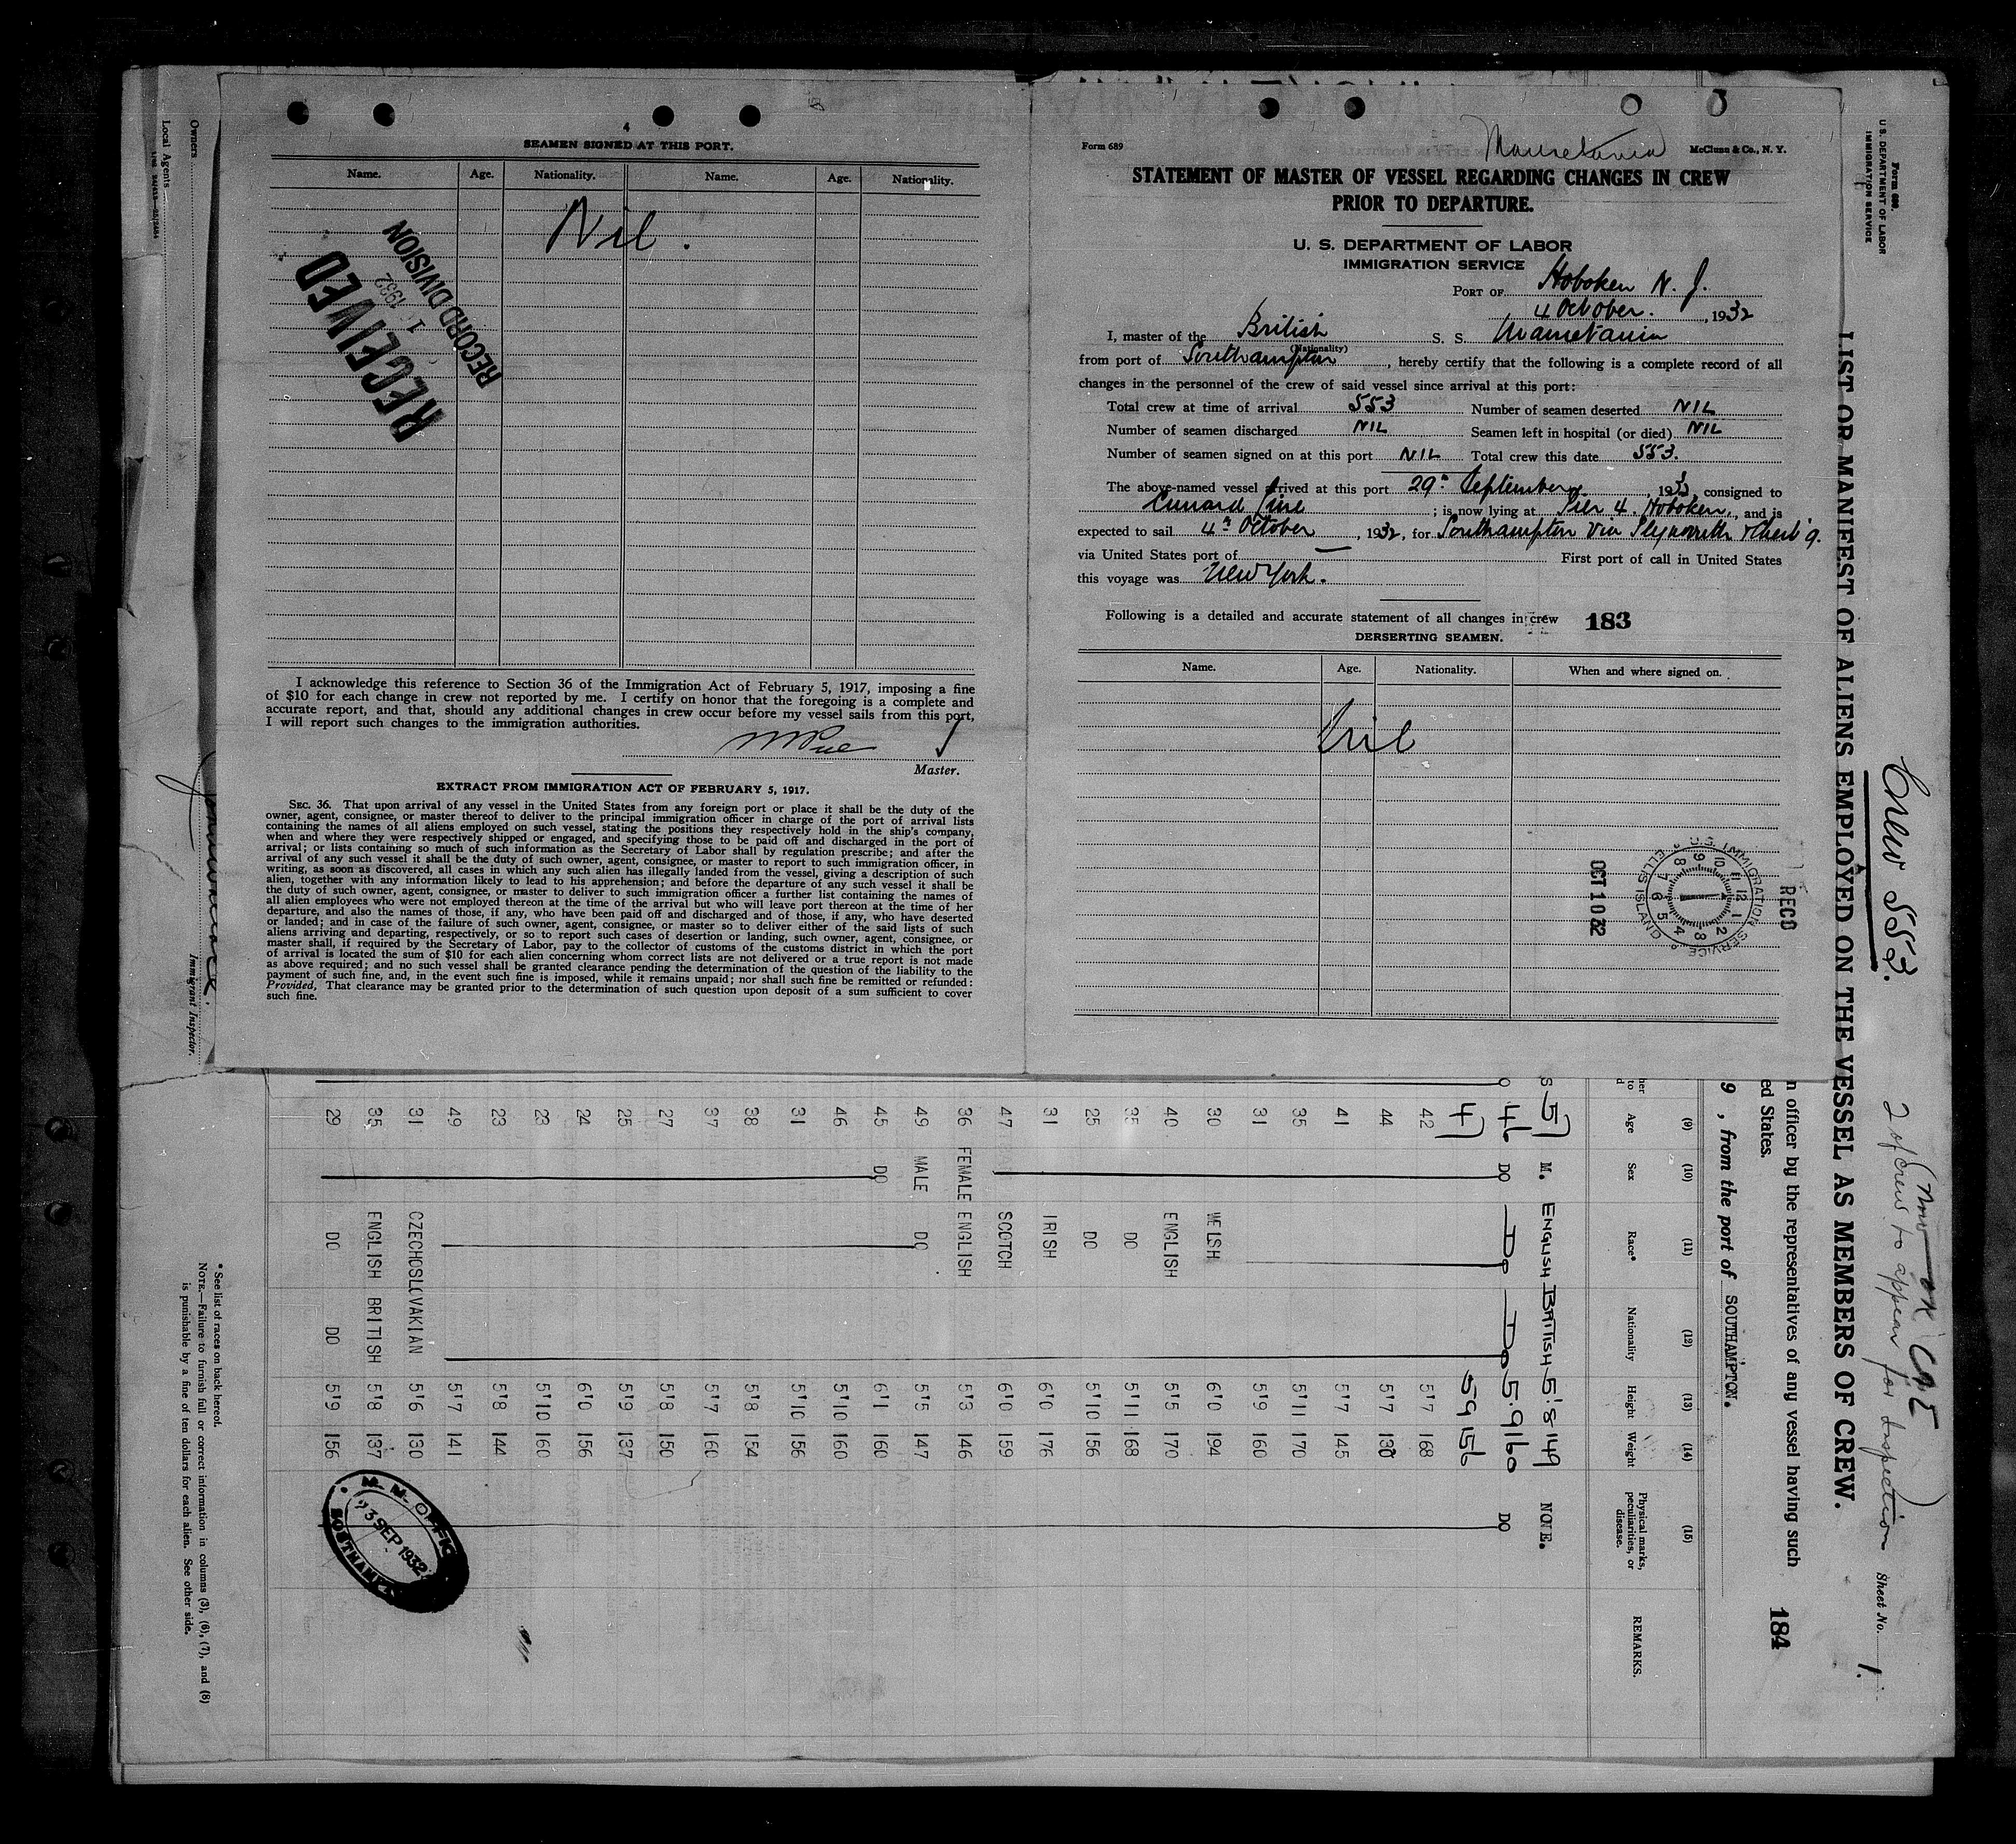 4
SEAMEN SIGNED AT THIS PORT.
Name. Age. Nationality. Name. Age. Nationality.
Nil.
RECEIVED
1 1932
RECORD DIVISION
I acknowledge this reference to Section 36 of the Immigration Act of February 5, 1917, imposing a fine
of $10 for each change in crew not reported by me. I certify on honor that the foregoing is a complete and
accurate report, and that, should any additional changes in crew occur before my vessel sails from this port,
I will report such changes to the immigration authorities.
Master.
EXTRACT FROM IMMIGRATION ACT OF FEBRUARY 5, 1917.
SEC. 36. That upon arrival of any vessel in the United States from any foreign port or place it shall be the duty of the
owner, agent, consignee, or master thereof to deliver to the principal immigration officer in charge of the port of arrival lists
containing the names of all aliens employed on such vessel, stating the positions they respectively hold in the ship's company,
when and where they were respectively shipped or engaged, and specifying those to be paid off and discharged in the port of
arrival; or lists containing so much of such information as the Secretary of Labor shall by regulation prescribe; and after the
arrival of any such vessel it shall be the duty of such owner, agent, consignee, or master to report to such immigration officer, in
writing, as soon as discovered, all cases in which any such alien has illegally landed from the vessel, giving a description of such
alien, together with any information likely to lead to his apprehension; and before the departure of any such vessel it shall be
the duty of such owner, agent, consignee, or master to deliver to such immigration officer a further list containing the names of
all alien employees who were not employed thereon at the time of the arrival but who will leave port thereon at the time of her
departure, and also the names of those, if any, who have been paid off and discharged and of those, if any, who have deserted
or landed; and in case of the failure of such owner, agent, consignee, or master so to deliver either of the said lists of such
aliens arriving and departing, respectively, or so to report such cases of desertion or landing, such owner, agent, consignee, or
master shall, if required by the Secretary of Labor, pay to the collector of customs of the customs district in which the port
of arrival is located the sum of $10 for each alien concerning whom correct lists are not delivered or a true report is not made
as above required; and no such vessel shall be granted clearance pending the determination of the question of the liability to the
payment of such fine, and, in the event such fine is imposed, while it remains unpaid; nor shall such fine be remitted or refunded:
Provided, That clearance may be granted prior to the determination of such question upon deposit of a sum sufficient to cover
such fine.
Form 689 Mauretania McClunn & Co., N. Y.
STATEMENT OF MASTER OF VESSEL REGARDING CHANGES IN CREW
PRIOR TO DEPARTURE.
U. S. DEPARTMENT OF LABOR
IMMIGRATION SERVICE
PORT OF Hoboken N. J.
4 October. , 1932
I, master of the British S. S. Mauretania
(Nationality)
from port of Southampton , hereby certify that the following is a complete record of all
changes in the personnel of the crew of said vessel since arrival at this port:
Total crew at time of arrival 553 Number of seamen deserted NIL
Number of seamen discharged NIL Seamen left in hospital (or died) NIL
Number of seamen signed on at this port NIL Total crew this date 553.
The above-named vessel arrived at this port 29th September , 1932, consigned to
Cunard Line ; is now lying at Pier 4. Hoboken. , and is
expected to sail 4th October , 1932, for Southampton via Plymouth & Cherb'g.
via United States port of — First port of call in United States
this voyage was New York.
Following is a detailed and accurate statement of all changes in crew 183
DERSERTING SEAMEN.
Name. Age. Nationality. When and where signed on.
Nil
RECD
U.S. IMMIGRATION SERVICE ELLIS ISLAND
12 1 2 3 4 5 6 7 8 9 10 11
OCT 10 32
Form 689.
U. S. DEPARTMENT OF LABOR
IMMIGRATION SERVICE
Crew 553.
2 of crew to appear for Inspection
Sheet No. 1.
LIST OR MANIFEST OF ALIENS EMPLOYED ON THE VESSEL AS MEMBERS OF CREW.
n officer by the representatives of any vessel having such
ed States.
184
9 , from the port of SOUTHAMPTON.
(9) (10) (11) (12) (13) (14) (15)
Age Sex Race* Nationality Height Weight Physical marks, peculiarities, or disease. REMARKS.
S 57 M. ENGLISH BRITISH 5'8 149 NONE.
DO 46 DO Do Do 5.9 160 DO
47 5 9 156
42 5'7 168
44 5'7 130
41 5'7 145
35 5'11 170
31 5'9 160
30 WELSH 6'0 194
40 ENGLISH 5'5 170
35 DO 5'11 168
25 DO 5'10 156
31 IRISH 6'0 176
47 SCOTCH 6'0 159
36 FEMALE ENGLISH 5'3 146
49 MALE DO 5'5 147
45 DO 6'1 160
46 5'10 160
31 5'10 156
38 5'8 154
37 5'7 160
27 5'8 150
25 5'9 137
24 6'0 156
23 5'10 160
23 5'8 144
49 5'7 141
31 CZECHOSLOVAKIAN 5'6 130
35 ENGLISH BRITISH 5'8 137
29 DO DO 5'9 156
M. M. OFFICE
23 SEP 1932
SOUTHAMPTON
* See list of races on back hereof.
NOTE.—Failure to furnish full or correct information in columns (3), (6), (7), and (8)
is punishable by a fine of ten dollars for each alien. See other side.
Owners
Local Agents
Immigrant Inspector.